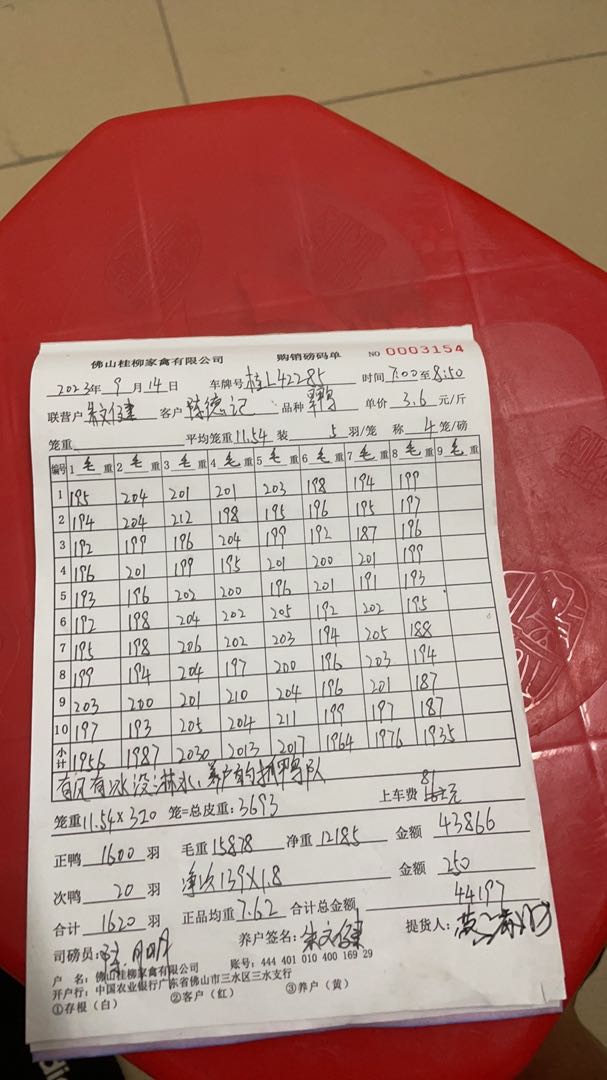 佛山桂柳家禽有限公司 购销磅码单 NO 0003154
2023年 9 月 14 日 车牌号 桂L42285 时间 7:00 至 8:50
联营户 客户 德记 品种 单价 3.6 元/斤
笼重 平均笼重 11.54 装 5 羽/笼 称 4 笼/磅
编号 1 毛 重 2 毛 重 3 毛 重 4 毛 重 5 毛 重 6 毛 重 7 毛 重 8 毛 重 9 毛 重
1 195 204 201 201 203 198 194 199
2 194 204 212 198 195 196 195 197
3 192 199 196 204 199 192 187 196
4 196 201 199 195 201 200 201 199
5 193 196 202 200 196 201 191 193
6 192 198 204 202 205 192 202 195
7 195 198 206 202 203 194 205 188
8 199 194 204 197 200 196 203 194
9 203 200 201 210 204 196 201 187
10 197 193 205 204 211 199 197 187
小计 1956 1987 2030 2013 2017 1964 1976 1935
有风有冰没淋水、养户有抓鸭队
笼重 11.54×320 笼=总皮重: 3693 上车费 81 元
正鸭 1600 羽 毛重 15878 净重 12185 金额 43866
次鸭 20 羽 净次139×1.8 金额 250
合计 1620 羽 正品均重 7.62 合计总金额 44197
司磅员: 养户签名: 提货人:
户 名: 佛山桂柳家禽有限公司 账号: 444 401 010 400 169 29
开户行: 中国农业银行广东省佛山市三水区三水支行
①存根（白） ②客户（红） ③养户（黄）